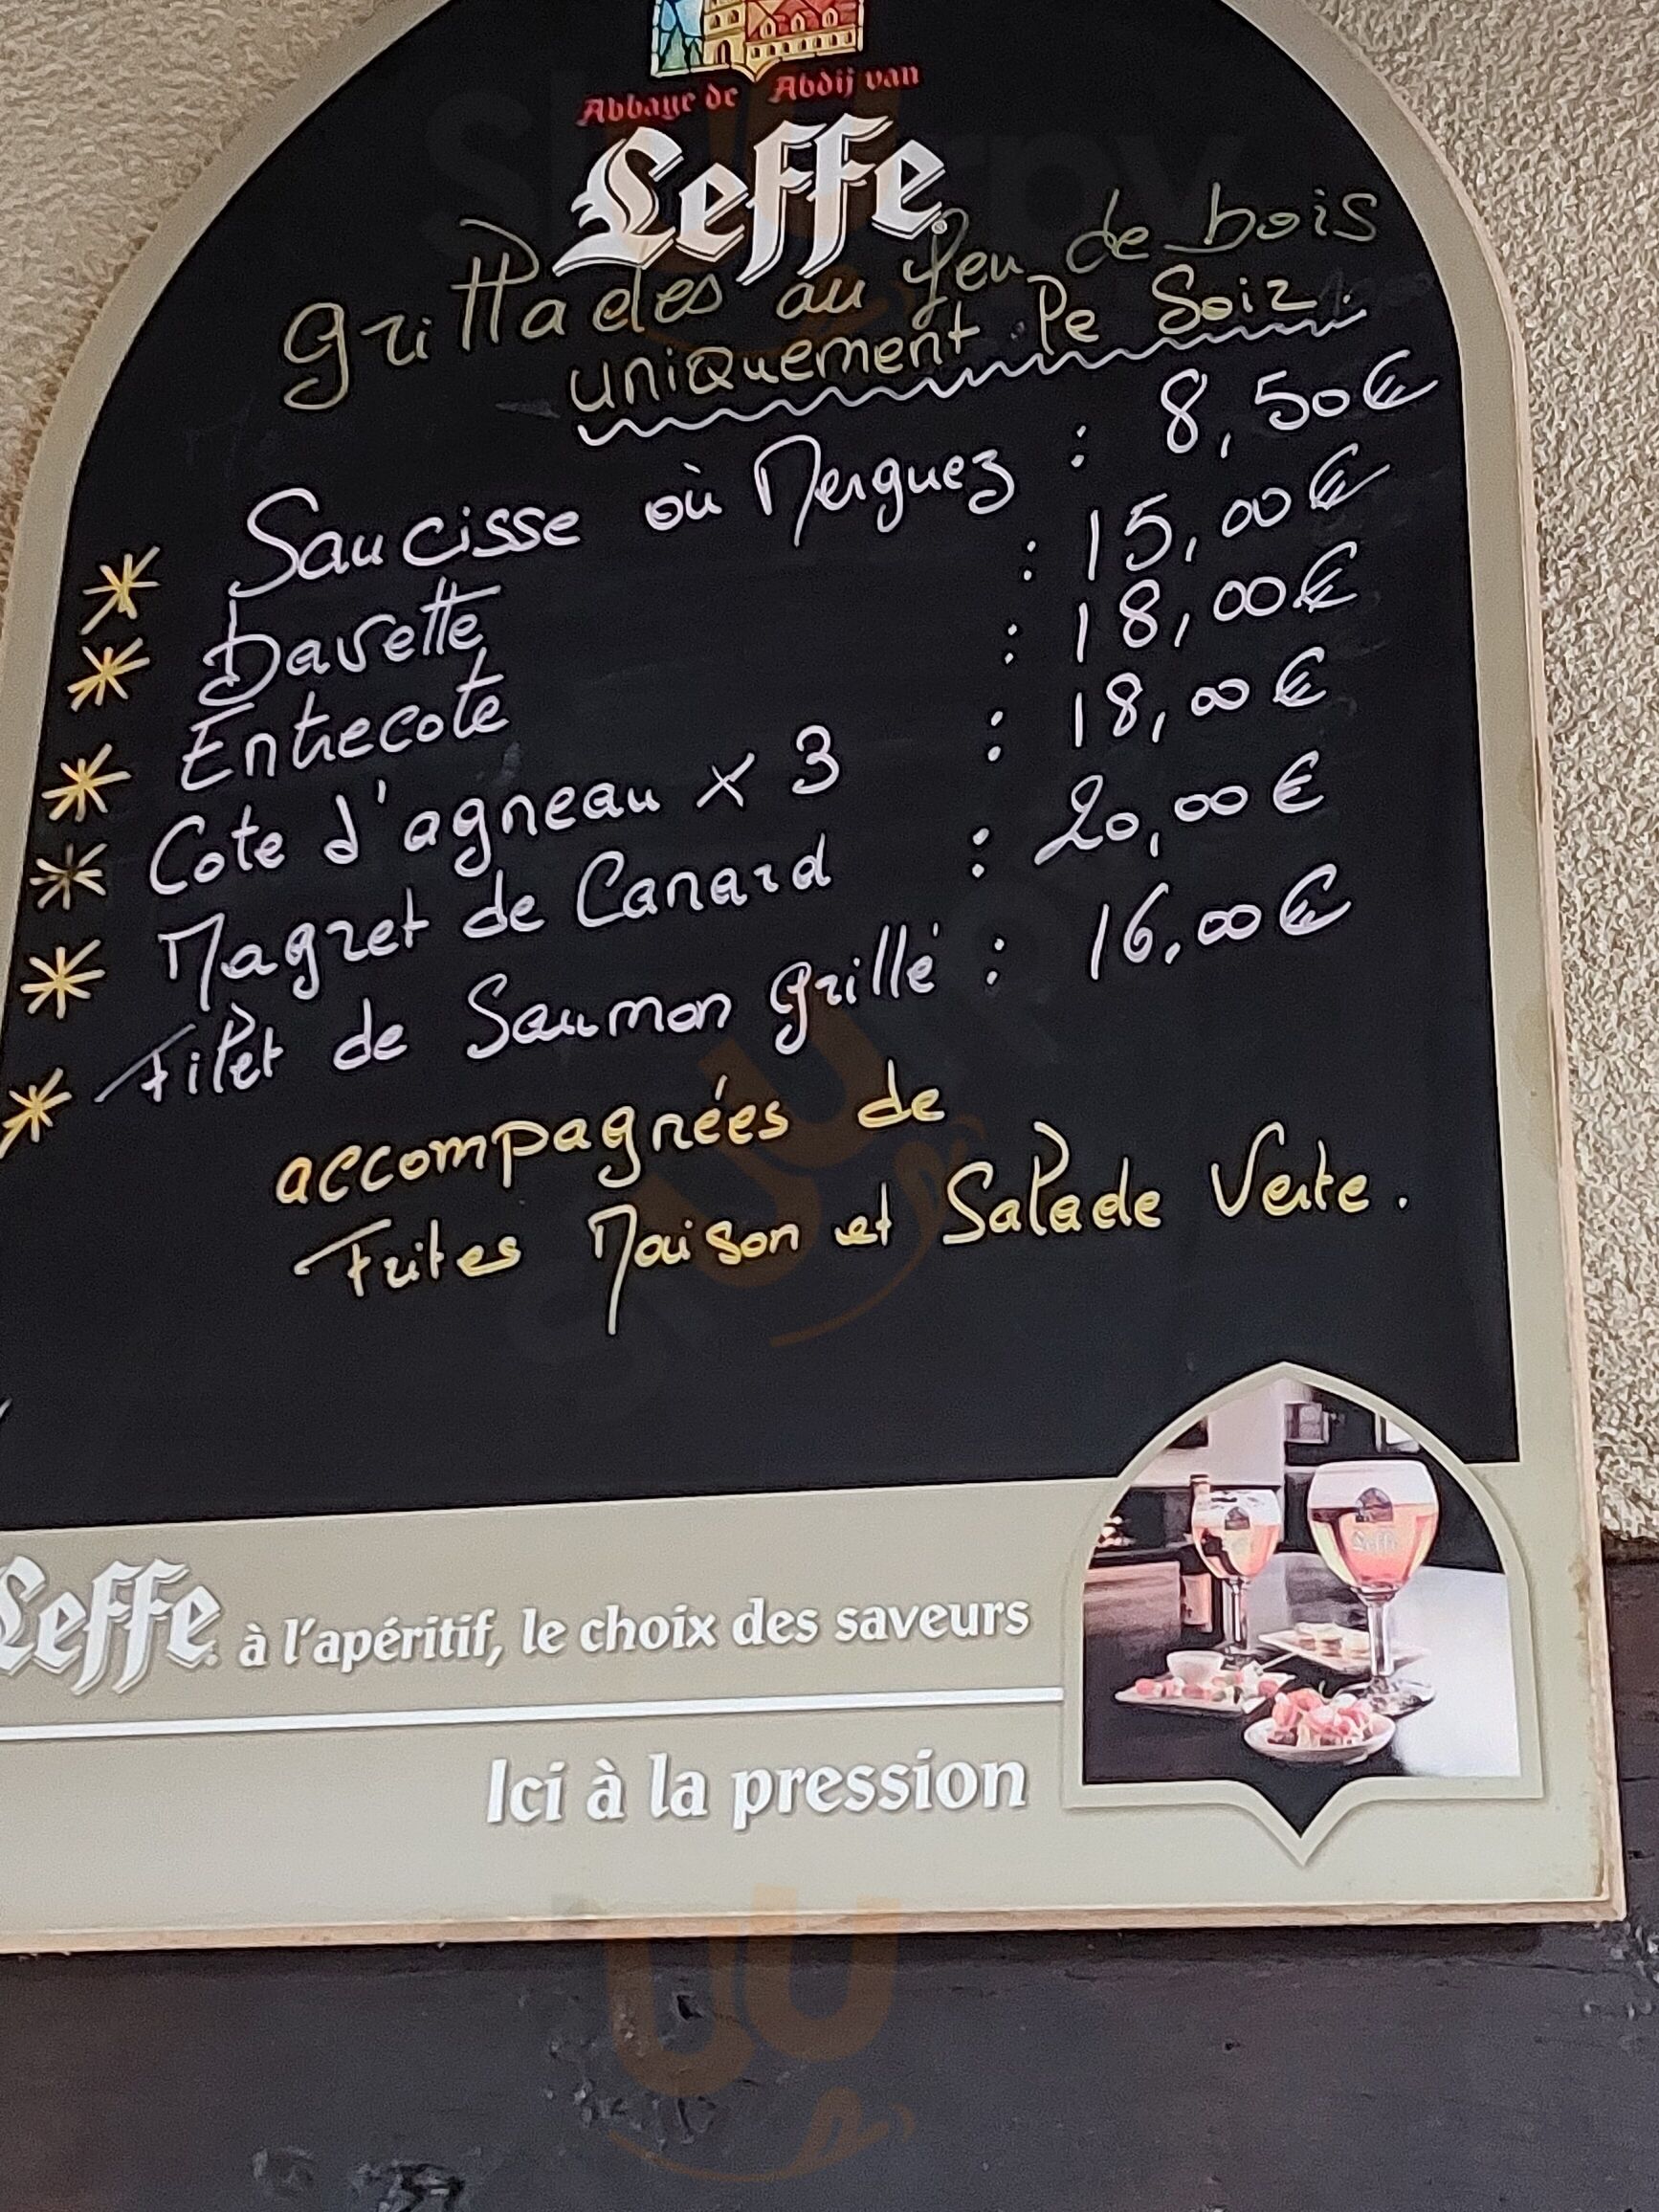 Abbaye de Abdij van
Leffe
grillades au feu de bois
uniquement le Soir.
* Saucisse où Merguez : 8,50€
* Bavette : 15,00€
* Entrecote : 18,00€
* Cote d'agneau x 3 : 18,00€
* Magret de Canard : 20,00€
* Filet de Saumon grillé : 16,00€
accompagnées de
Frites Maison et Salade Verte.
Leffe
Leffe à l'apéritif, le choix des saveurs
Ici à la pression